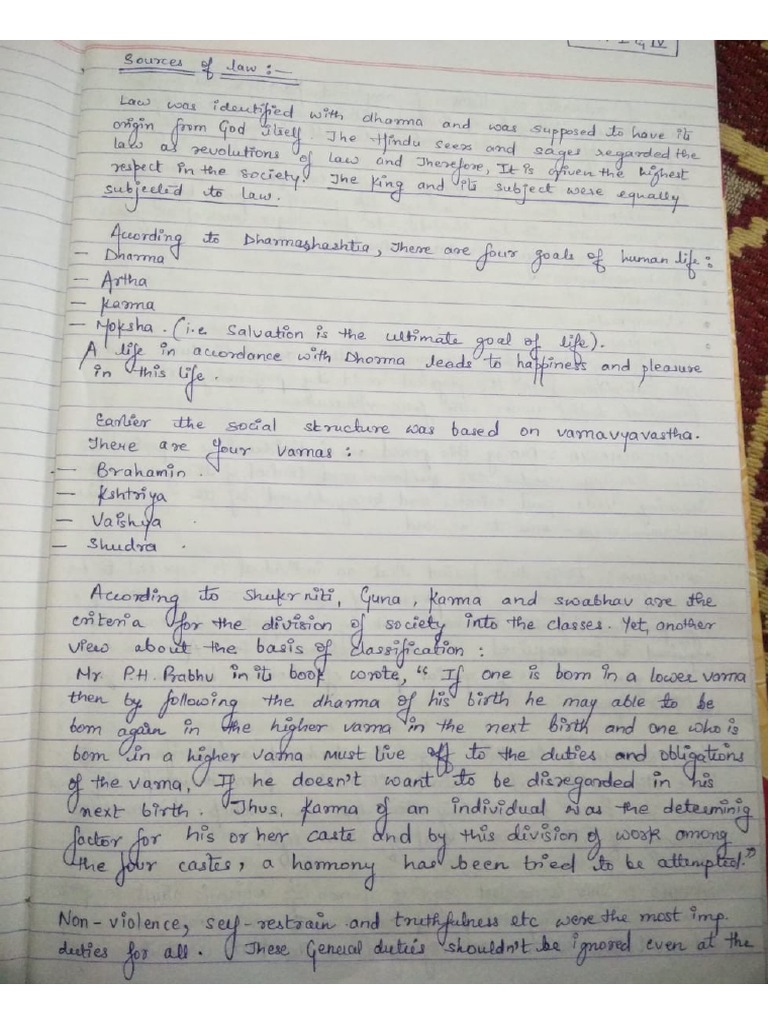 Sources of law :-
Law was identified with dharma and was supposed to have its
origin from God itself. The Hindu seers and sages regarded the
law as revolutions of law and Therefore, It is given the highest
respect in the society. The King and its subject were equally
subjected to law.
Acording to Dharmashashtra, There are four goals of human life:
- Dharma
- Artha
- Karma
- Moksha. (i.e salvation is the ultimate goal of life).
A life in accordance with Dharma leads to happiness and pleasure
in this life.
Earlier the social structure was based on varnavyavastha.
There are four Varnas :
- Brahamin.
- Kshtriya
- Vaishya.
- Shudra.
According to Shukrniti, Guna, Karma and swabhav are the
criteria for the division of society into the classes. Yet, another
view about the basis of classification :
Mr. P.H. Prabhu in it book wrote, "If one is born in a lower varna
then by following the dharma of his birth he may able to be
born again in the higher varna in the next birth and one who is
born in a higher varna must live off to the duties and obligations
of the varna, If he doesn't want to be disregarded in his
next birth. Thus, Karma of an individual was the determinig
factor for his or her caste and by this division of work among
the four castes, a harmony has been tried to be attempted."
Non-violence, self-restrain and truthfulness etc were the most imp.
duties for all. These General duties shouldn't be ignored even at the